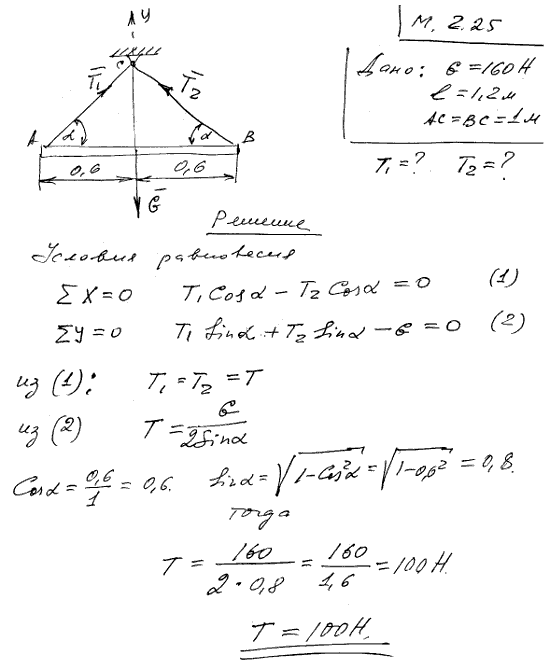 М. 2.25
Дано: G = 160 Н
l = 1,2 м
AC = BC = 1 м
T₁ = ? T₂ = ?
y
C
T̄₁ T̄₂
A α α B
0,6 0,6
Ḡ
Решение
Условия равновесия
ΣX = 0 T₁ Cosα − T₂ Cosα = 0 (1)
ΣY = 0 T₁ Sinα + T₂ Sinα − G = 0 (2)
из (1): T₁ = T₂ = T
из (2) T = G / 2Sinα
Cosα = 0,6/1 = 0,6. Sinα = √(1−Cos²α) = √(1−0,6²) = 0,8.
тогда
T = 160 / 2·0,8 = 160 / 1,6 = 100 Н.
T = 100 Н.